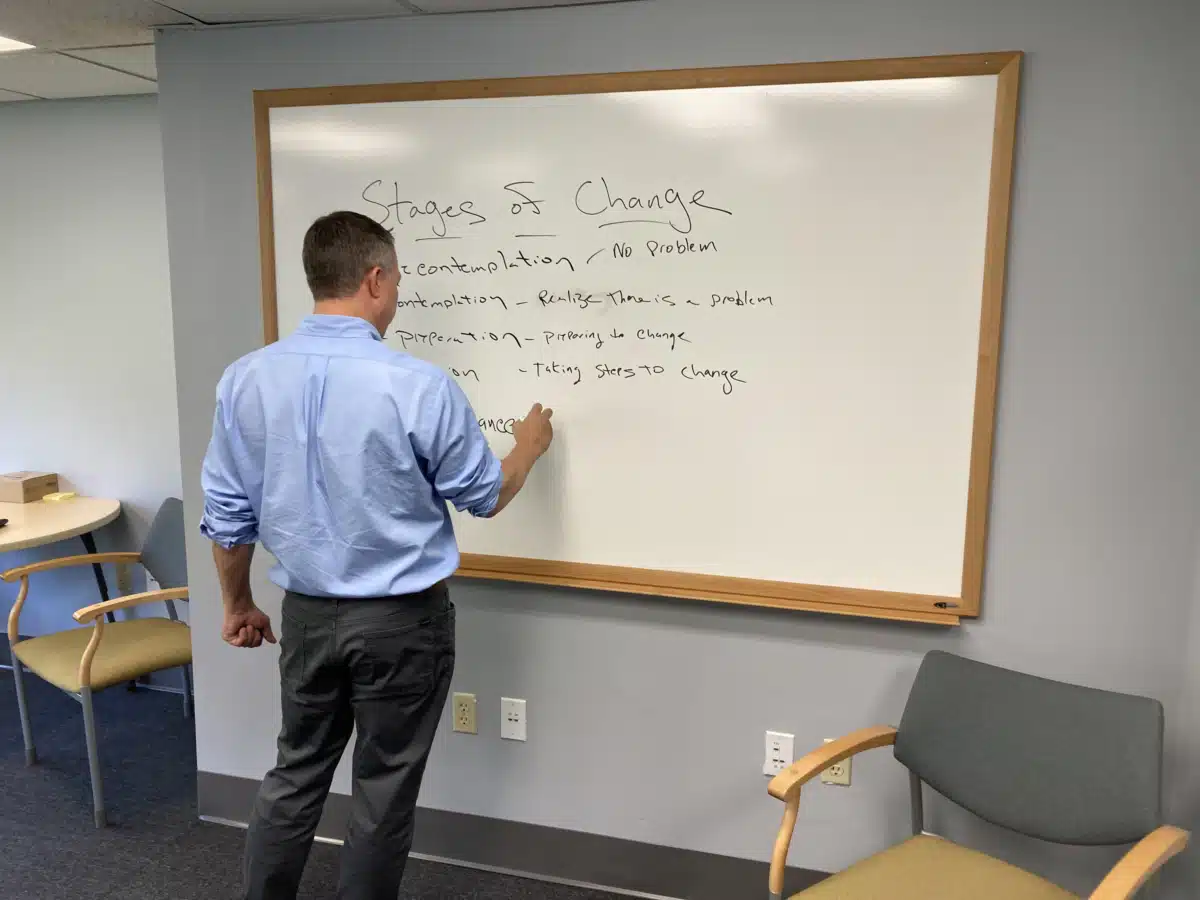 Stages of Change
contemplation / No Problem
ontemplation - Realize There is a problem
preparation - preparing to change
on - Taking Steps To change
ance